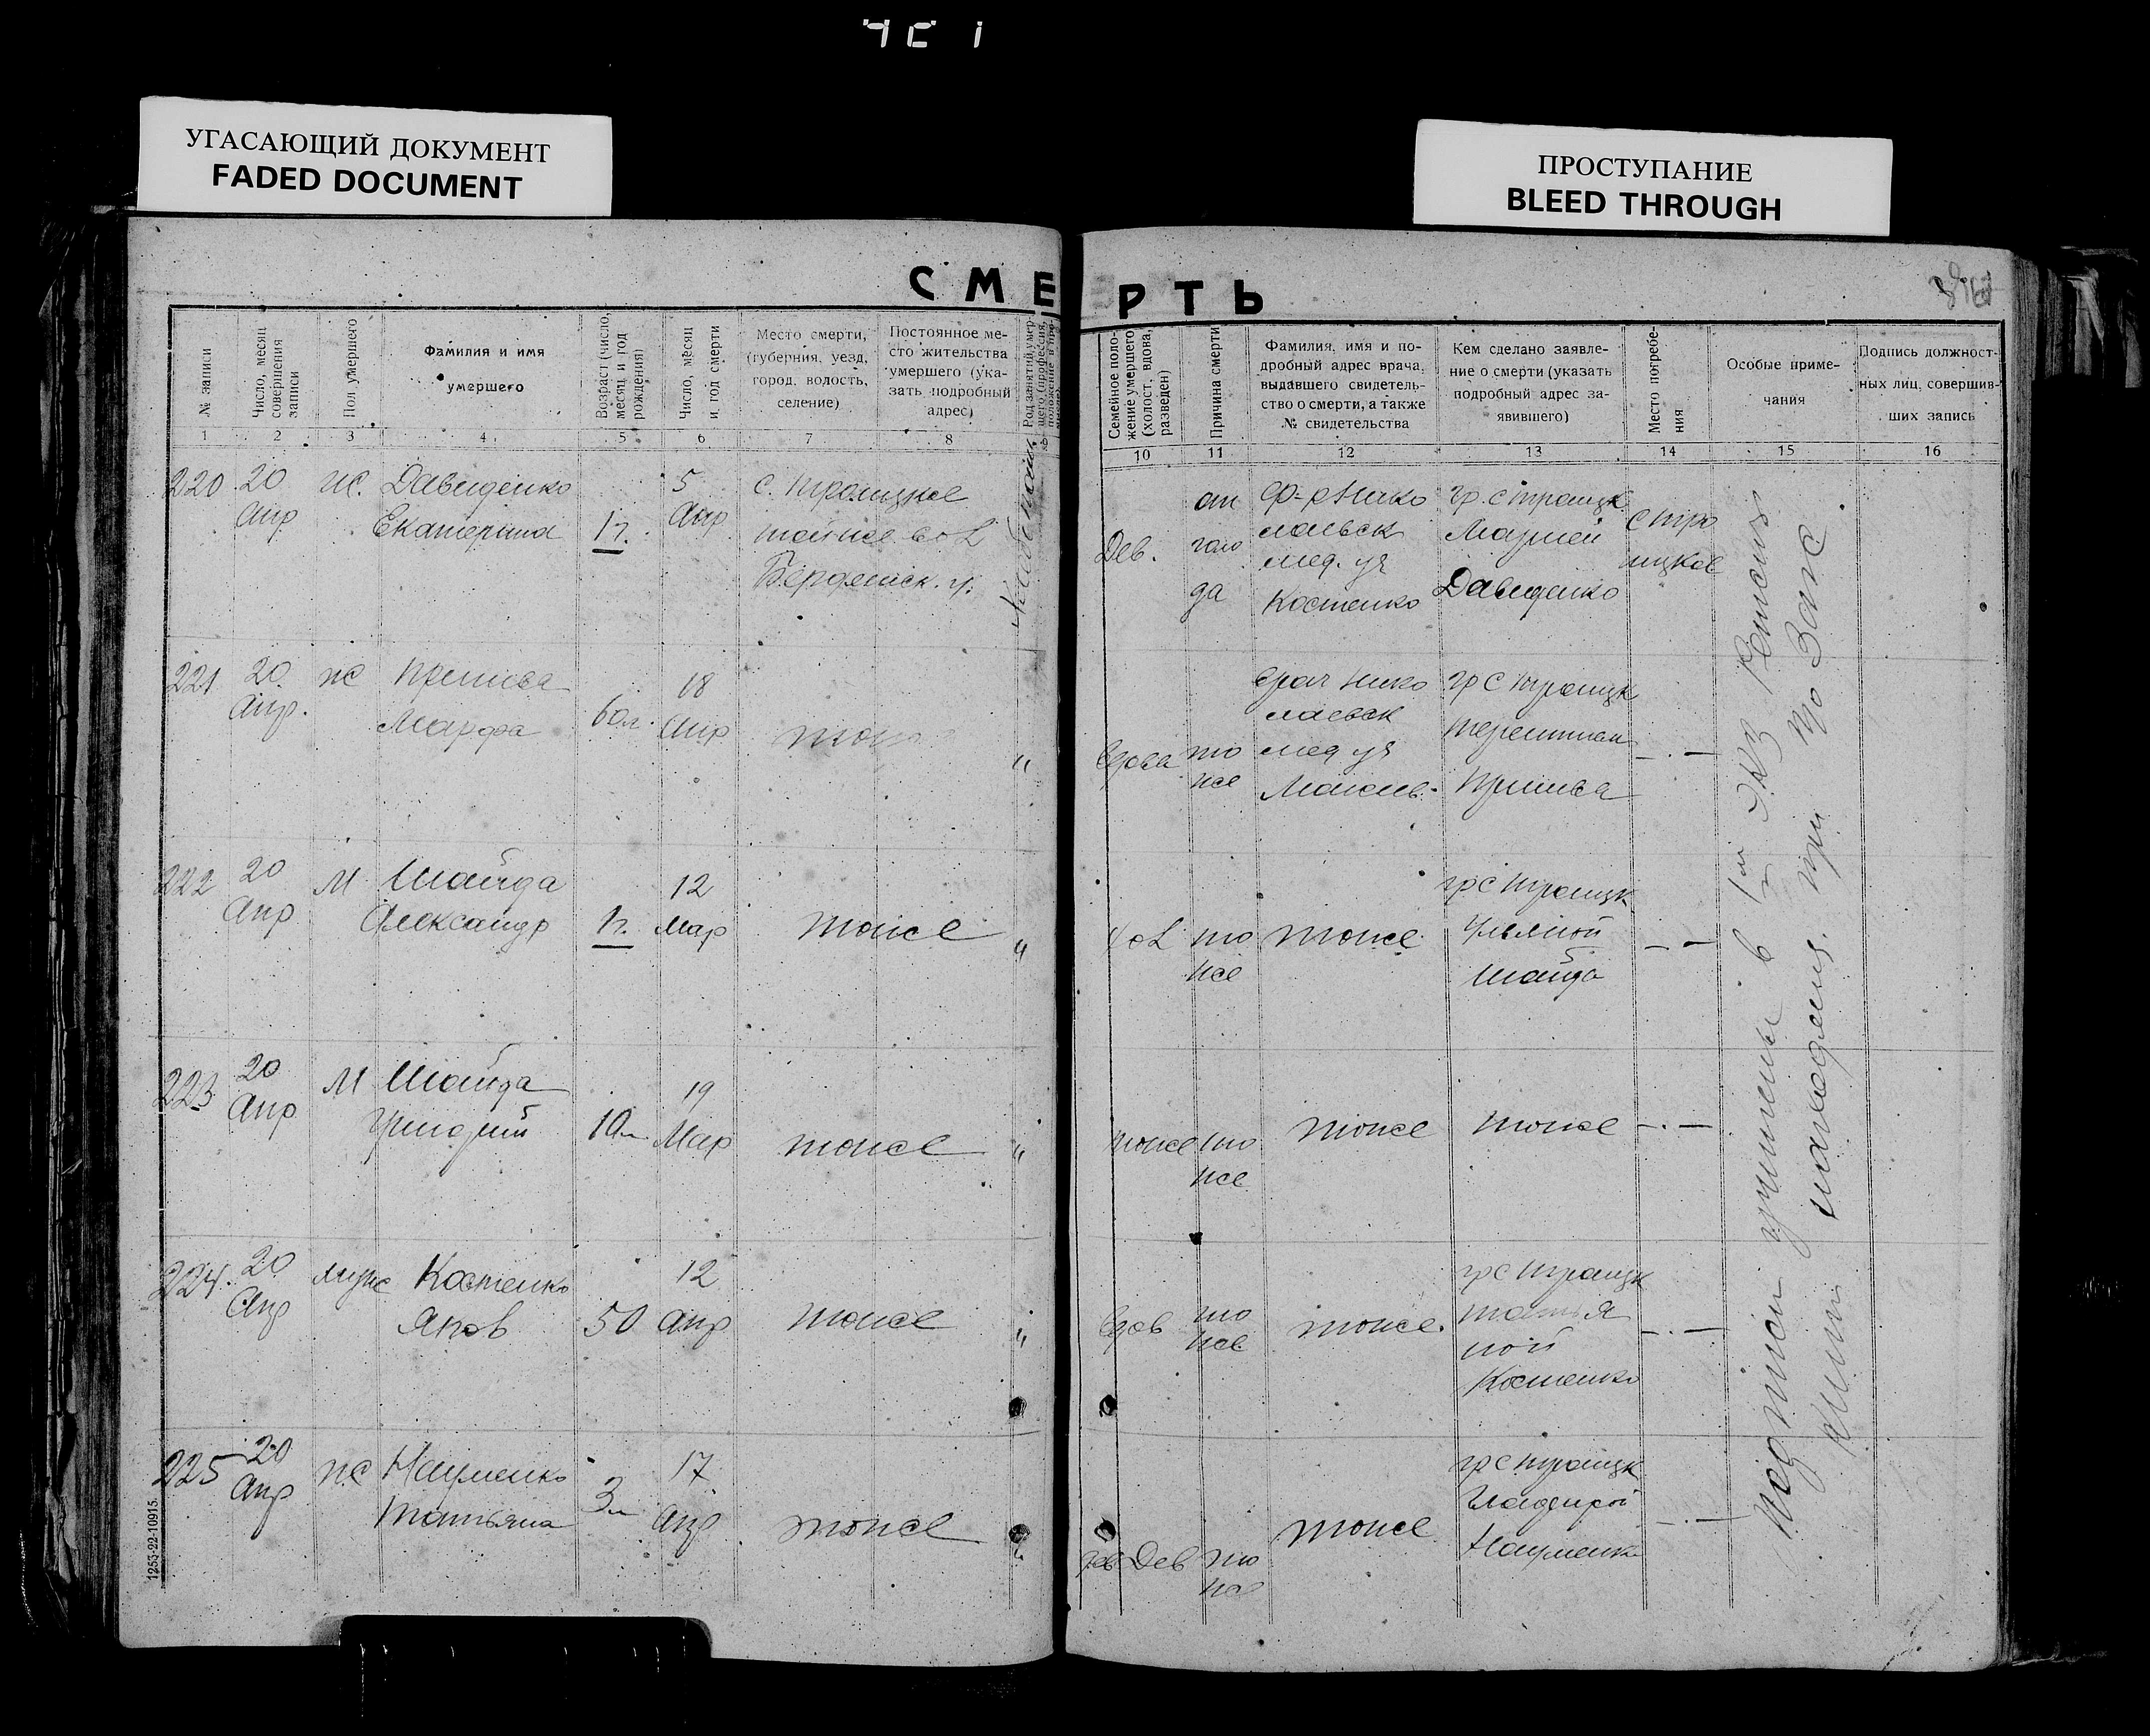 УГАСАЮЩИЙ ДОКУМЕНТ
FADED DOCUMENT
ПРОСТУПАНИЕ
BLEED THROUGH
СМЕРТЬ
№ записи
Число, месяц совершения записи
Пол умершего
Фамилия и имя
умершего
Возраст (число, месяц и год рождения)
Число, месяц и год смерти
Место смерти,
(губерния, уезд,
город, волость,
селение)
Постоянное ме-
сто жительства
умершего (ука-
зать подробный
адрес)
Семейное поло-
жение умершего
(холост, вдова,
разведен)
Причина смерти
Фамилия, имя и по-
дробный адрес врача,
выдавшего свидетель-
ство о смерти, а также
№ свидетельства
Кем сделано заявле-
ние о смерти (указать
подробный адрес за-
явившего)
Место погребе-
ния
Особые приме-
чания
Подпись должност-
ных лиц, совершив-
ших запись
1 2 3 4 5 6 7 8 10 11 12 13 14 15 16
220 20 Апр ж. Давиденко
Екатерина 1г. 5 Апр
с. Троицкое
тойже вол
Бердянск. у.
Дев. от голо да
Николаевск
мед. уч
Костенко
гр. с Троицк
Марией
Давиденко
с Тро
ицкое
221 20 Апр. ж
Марфа 60л. 18 Апр
"
Вдова то же
врач Нико
лаевск
мед уч
гр с Троицк
222 20 Апр М Шайда
Александр 1г. 12 Мар тоже "
Хол то же тоже
гр с Троицк
Ульяной
Шайда
223 20 Апр М Шайда
Григорий 10л 19 Мар тоже "
тоже то же тоже тоже
224. 20 Апр муж Костенко
Яков 50 12 Апр тоже "
Вдов то же тоже.
гр с Троицк
Татья
ной
Костенко
225 20 Апр ж Науменко
Татьяна 3л 17 Апр тоже
Дев то же тоже
гр с Троицк
Науменко
Подписи учинены в 1м экз
при По Загс
1253-22-10915.